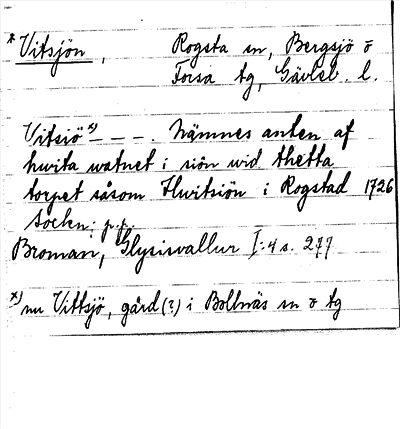 * Vitsjön, Rogsta sn, Bergsjö o
Forsa tg, Gävleb. l.
Vitsiö x) – – –. Nämnes anten af
hwita watnet i siön wid thetta
torpet såsom Hwitsiön i Rogstad 1726
Socken; p.p.
Broman, Glysisvallur I: 4 s. 277
x) nu Vittsjö, gård (?) i Bollnäs sn o tg